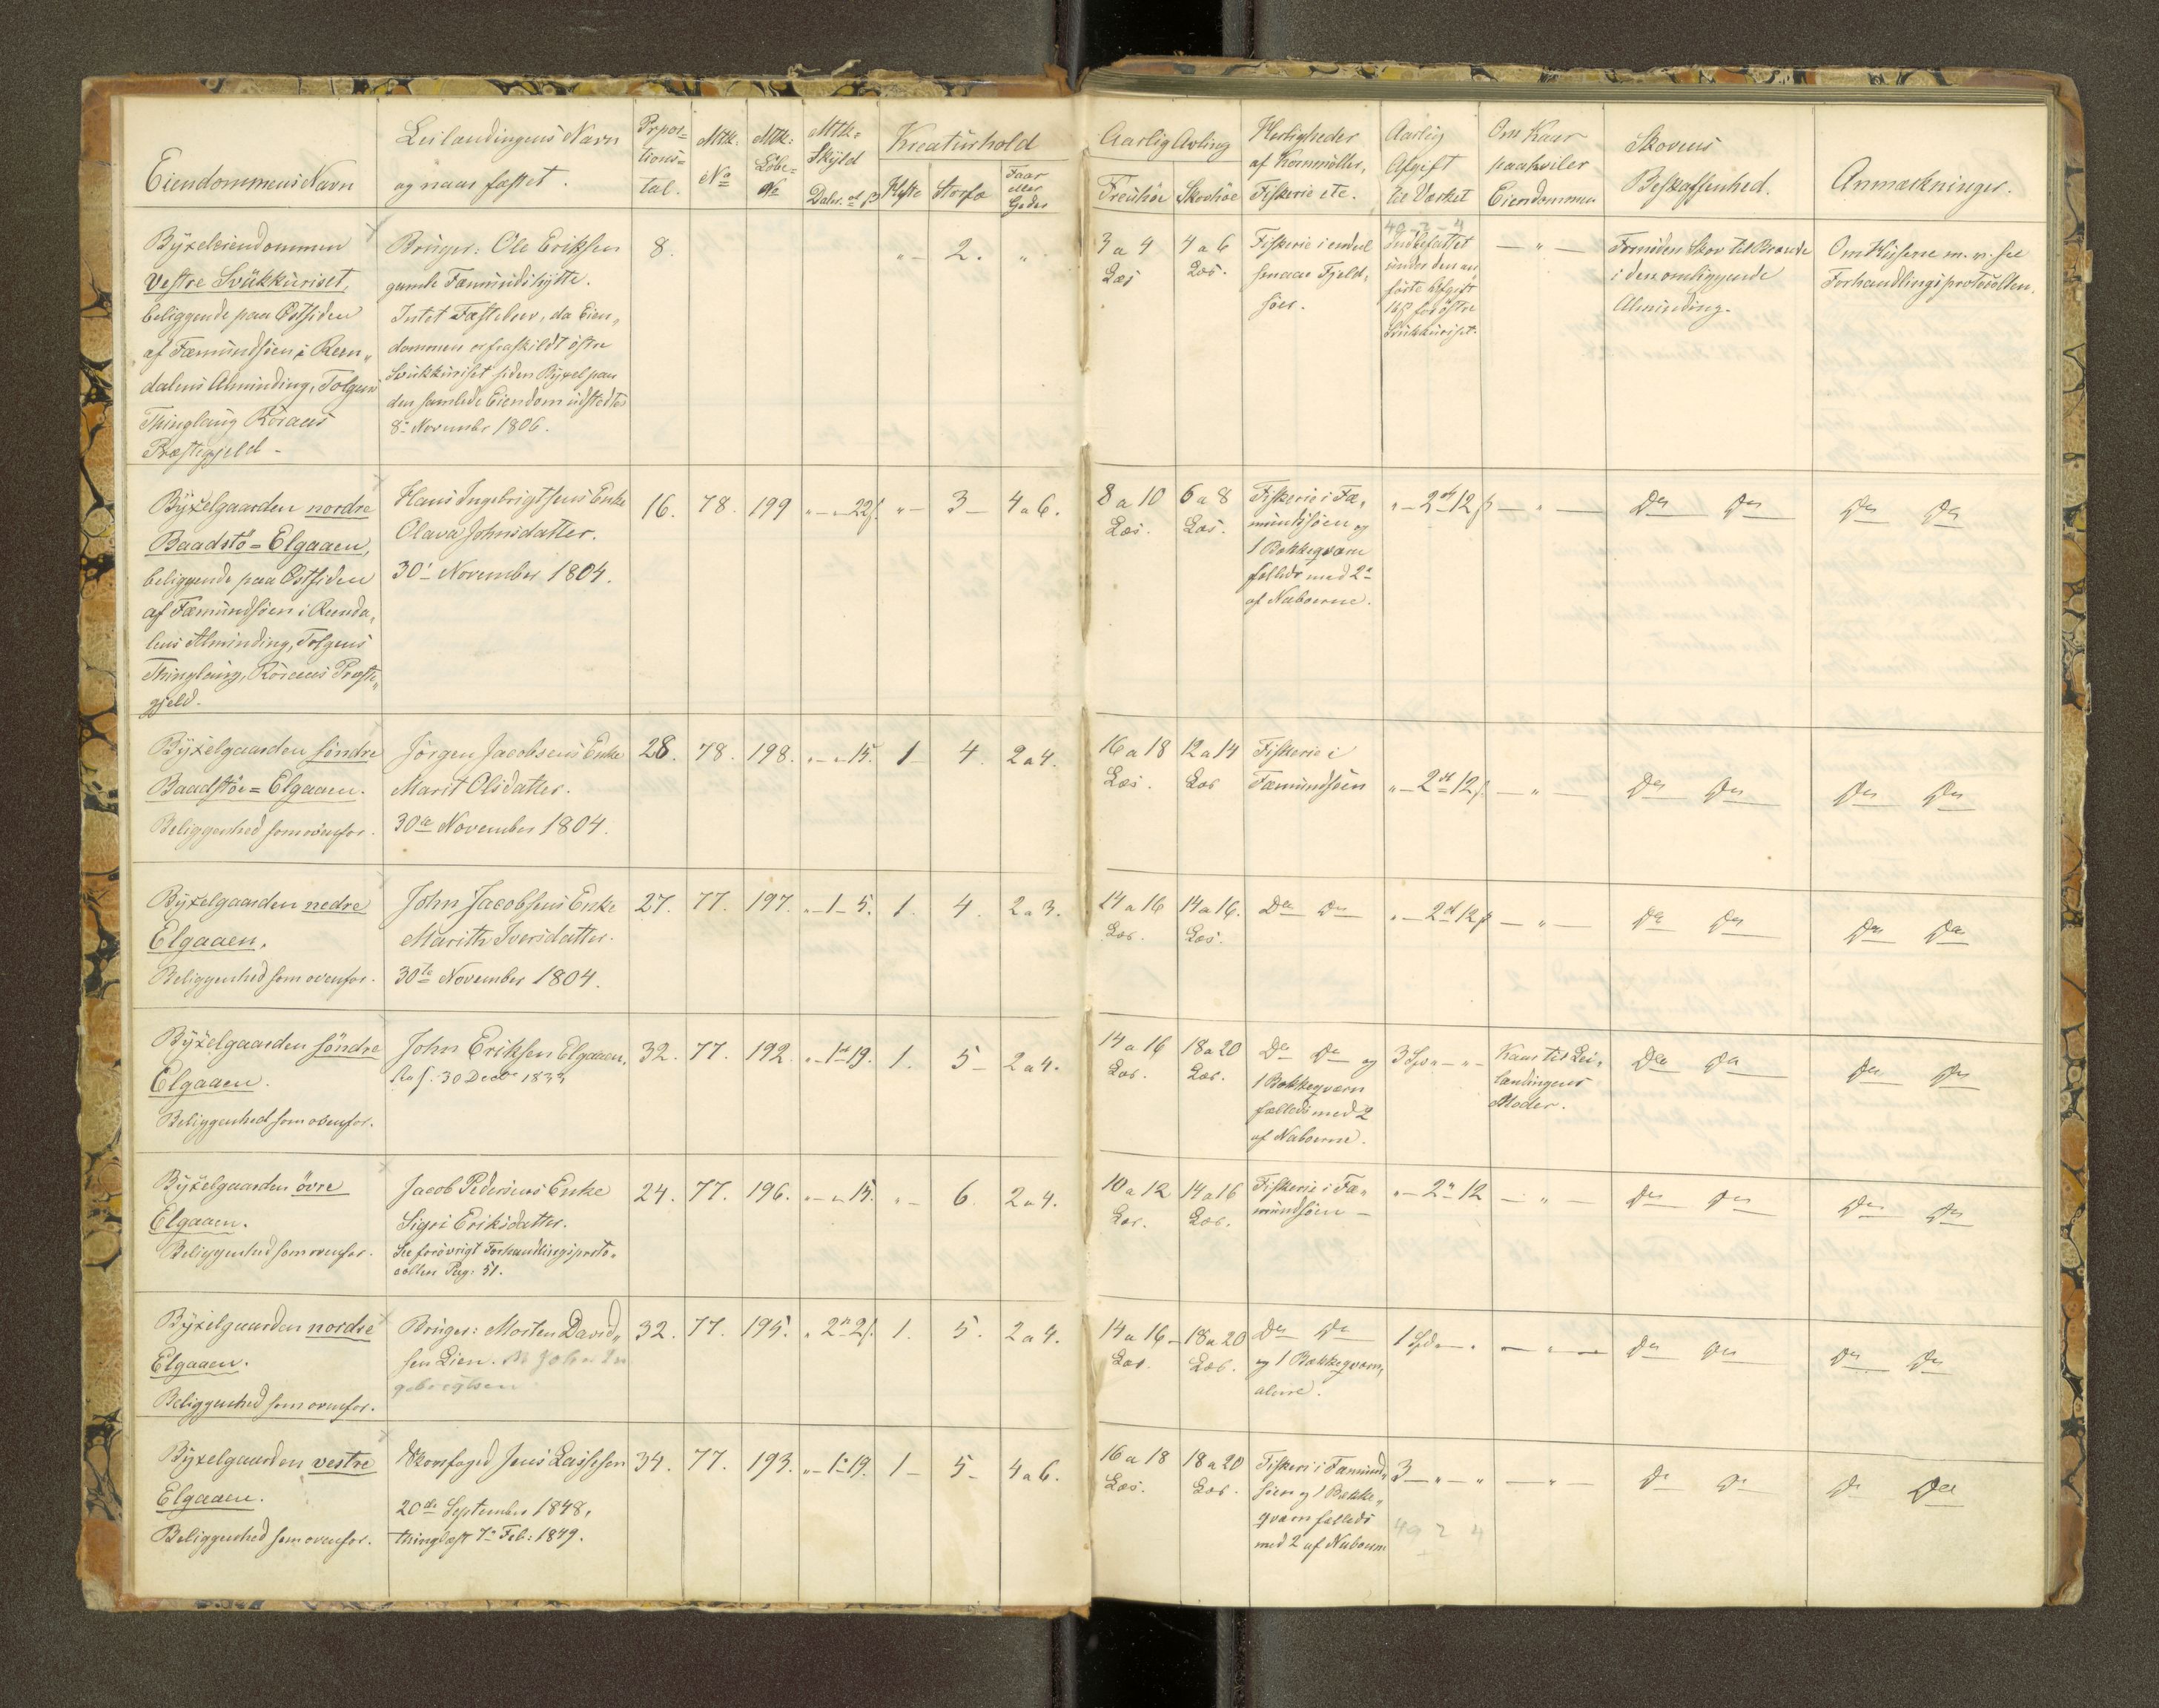 Eiendommens Navn
Leilændingens Navn
og naar fæstet.
Propor=
tions=
tal.
Mtk.
No
Mtk:
Löbe=
No
Mtk=
Skyld
Daler. ort ß
Kreaturhold
Heste
Storfæ
Faar
eller
Geder
Aarlig Avling
Fröehöe
Skovhöe
Herligheder
af Kornmöller,
Fiskerie etc.
Aarlig
Afgift
til Værket
Om Kaar
paahviler
Eiendommen
Skovens
Beskaffenhed.
Anmærkninger.
Byxeleiendommen
Vestre Svukkuriset,
beliggende paa Östsiden
af Fæmundsöen i Ren„
dalens Alminding, Tolgens
Thinglaug Röraas
Præstegjeld -
Bruger: Ole Eriksen
gamle Fæmundshytte.
Intet Fæstebrev, da Eien„
dommen er fraskildt östre
Svukkuriset siden Byxel paa
den samlede Eiendom udstedtes
8de November 1806.
8.
„ -
2.
„
3 a 4
Læs
4 a 6
Læs.
Fiskerie i endeel
smaae Fjeld„
söer.
49 - 2 - 4
Indbefattet
under den an„
förte Afgift
16ß for östre
Svukkuriset.
— „ —
Fornöden Skov til Brænde
i den omliggende
Alminding.
Om Husene m. m. see
Forhandlingsprotocollen.
Byxelgaarden nordre
Baadstö=Elgaaen,
beliggende paa Östsiden
af Fæmundsöen i Renda„
lens Alminding, Tolgens
Thinglaug, Röraas Præste„
gjeld.
Hans Ingebrigtsens Enke
Olava Johnsdatter.
30te November 1804.
16.
78.
199
„ - „ - 22ß.
„ -
3 -
4 a 6.
8 a 10
Læs.
6 a 8
Læs.
Fiskerie i Fæ„
mundsöen og
1 Bækkeqværn
fælleds med 2de
af Naboerne.
„ - 2 ort 12 ß
— „ —
Do Do
Do Do
Byxelgaarden söndre
Baadstöe=Elgaaen.
Beliggenhed som ovenfor.
Jörgen Jacobsens Enke
Marit Olsdatter.
30te November 1804.
28.
78.
198.
„ - „ - 15.
1 -
4.
2 a 4.
16 a 18
Læs.
12 a 14
Læs
Fiskerie i
Fæmundsöen
„ - 2 ort 12 ß.
— „ —
Do Do
Do Do
Byxelgaarden nedre
Elgaaen.
Beliggenhed som ovenfor.
John Jacobsens Enke
Marith Iversdatter.
30te November 1804.
27.
77.
197.
„ - 1 - 5.
1.
4.
2 a 3.
14 a 16
Læs.
14 a 16.
Læs.
Do Do
„ - 2 ort 12 ß
— „ —
Do Do
Do Do
Byxelgaarden söndre
Elgaaen.
Beliggenhed som ovenfor.
John Eriksen Elgaaen.
30 Decbr
32.
77.
192.
„ - 1 ort 19.
1.
5 -
2 a 4.
14 a 16
Læs.
18 a 20
Læs.
Do Do og
1 Bækkeqværn
fælleds med 2
af Naboerne.
3 Spd - „ -
Kaar til Lei„
lændingens
Moder.
Do Do
Do Do
Byxelgaarden övre
Elgaaen.
Beliggenhed som ovenfor.
Jacob Pedersens Enke
Sigri Eriksdatter.
See forövrigt Forhandlingsproto„
collen Pag: 51.
24.
77.
196.
„ - „ - 15.
„ -
6.
2 a 4.
10 a 12
Læs.
14 a 16
Læs.
Fiskerie i Fæ„
mundsöen —
„ - 2 „ 12
— „ —
Do Do
Do Do
Byxelgaarden nordre
Elgaaen.
Beliggenhed som ovenfor.
Bruger: Morten David„
sen Lien. John In
gebrigtsen
32.
77.
195.
„ 2 „ 2ß.
1.
5.
2 a 4.
14 a 16 -
Læs.
18 a 20
Læs.
Do Do
og 1 Bækkeqværn,
alene.
1 Spd - „
— „ —
Do Do
Do Do
Byxelgaarden vestre
Elgaaen.
Beliggenhed som ovenfor.
Skovfoged Jens Lassesen
20de September 1848,
thinglæst 7de Feb: 1849.
34.
77.
193.
„ - 1 „ 19.
1 -
5 -
4 a 6.
16 a 18
Læs.
18 a 20
Læs.
Fiskeri i Fæmund„
söen og 1 Bække„
qværn fælleds
med 2 af Naboerne
3 - „ - „
49 2 4
— „ —
Do Do
Do Do